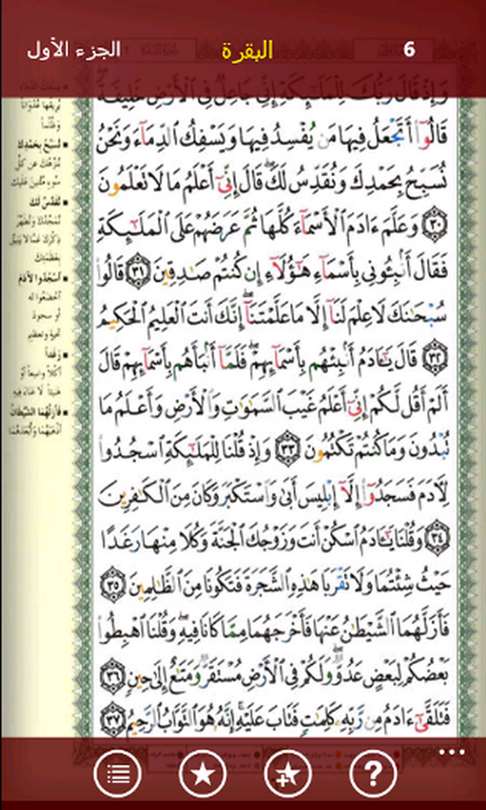 الجزء الأول البقرة 6
وَإِذْ قَالَ رَبُّكَ لِلْمَلَٰٓئِكَةِ إِنِّى جَاعِلٌ فِى ٱلْأَرْضِ خَلِيفَةً
قَالُوٓا۟ أَتَجْعَلُ فِيهَا مَن يُفْسِدُ فِيهَا وَيَسْفِكُ ٱلدِّمَآءَ وَنَحْنُ
نُسَبِّحُ بِحَمْدِكَ وَنُقَدِّسُ لَكَ ۖ قَالَ إِنِّىٓ أَعْلَمُ مَا لَا تَعْلَمُونَ
٣٠ وَعَلَّمَ ءَادَمَ ٱلْأَسْمَآءَ كُلَّهَا ثُمَّ عَرَضَهُمْ عَلَى ٱلْمَلَٰٓئِكَةِ
فَقَالَ أَنۢبِـُٔونِى بِأَسْمَآءِ هَٰٓؤُلَآءِ إِن كُنتُمْ صَٰدِقِينَ ٣١ قَالُوا۟
سُبْحَٰنَكَ لَا عِلْمَ لَنَآ إِلَّا مَا عَلَّمْتَنَآ ۖ إِنَّكَ أَنتَ ٱلْعَلِيمُ ٱلْحَكِيمُ
٣٢ قَالَ يَٰٓـَٔادَمُ أَنۢبِئْهُم بِأَسْمَآئِهِمْ ۖ فَلَمَّآ أَنۢبَأَهُم بِأَسْمَآئِهِمْ قَالَ
أَلَمْ أَقُل لَّكُمْ إِنِّىٓ أَعْلَمُ غَيْبَ ٱلسَّمَٰوَٰتِ وَٱلْأَرْضِ وَأَعْلَمُ مَا
تُبْدُونَ وَمَا كُنتُمْ تَكْتُمُونَ ٣٣ وَإِذْ قُلْنَا لِلْمَلَٰٓئِكَةِ ٱسْجُدُوا۟
لِءَادَمَ فَسَجَدُوٓا۟ إِلَّآ إِبْلِيسَ أَبَىٰ وَٱسْتَكْبَرَ وَكَانَ مِنَ ٱلْكَٰفِرِينَ
٣٤ وَقُلْنَا يَٰٓـَٔادَمُ ٱسْكُنْ أَنتَ وَزَوْجُكَ ٱلْجَنَّةَ وَكُلَا مِنْهَا رَغَدًا
حَيْثُ شِئْتُمَا وَلَا تَقْرَبَا هَٰذِهِ ٱلشَّجَرَةَ فَتَكُونَا مِنَ ٱلظَّٰلِمِينَ ٣٥
فَأَزَلَّهُمَا ٱلشَّيْطَٰنُ عَنْهَا فَأَخْرَجَهُمَا مِمَّا كَانَا فِيهِ ۖ وَقُلْنَا ٱهْبِطُوا۟
بَعْضُكُمْ لِبَعْضٍ عَدُوٌّ ۖ وَلَكُمْ فِى ٱلْأَرْضِ مُسْتَقَرٌّ وَمَتَٰعٌ إِلَىٰ حِينٍ ٣٦
فَتَلَقَّىٰٓ ءَادَمُ مِن رَّبِّهِۦ كَلِمَٰتٍ فَتَابَ عَلَيْهِ ۚ إِنَّهُۥ هُوَ ٱلتَّوَّابُ ٱلرَّحِيمُ ٣٧
وَنُسَبِّحُ بِحَمْدِكَ
نُقَدِّسُ لَكَ
اسْجُدُوا لِآدَمَ
رَغَدًا
فَأَزَلَّهُمَا الشَّيْطَانُ